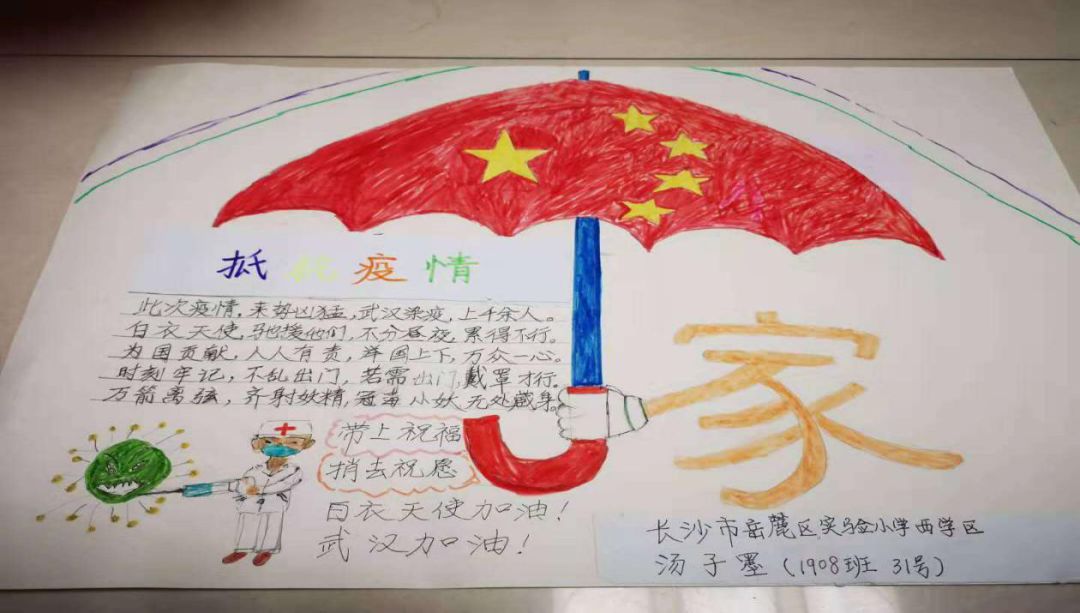 抵抗疫情
此次疫情，来势凶猛，武汉染疫，上千余人。
白衣天使，驰援他们，不分昼夜，累得不行。
为国贡献，人人有责，举国上下，万众一心。
时刻牢记，不乱出门，若需出门，戴罩才行。
万箭离弦，齐射妖精，冠毒小妖无处藏身。
带上祝福
捎去祝愿
白衣天使加油！
武汉加油！
家
长沙市岳麓区实验小学西学区
汤子墨（1908班 31号）